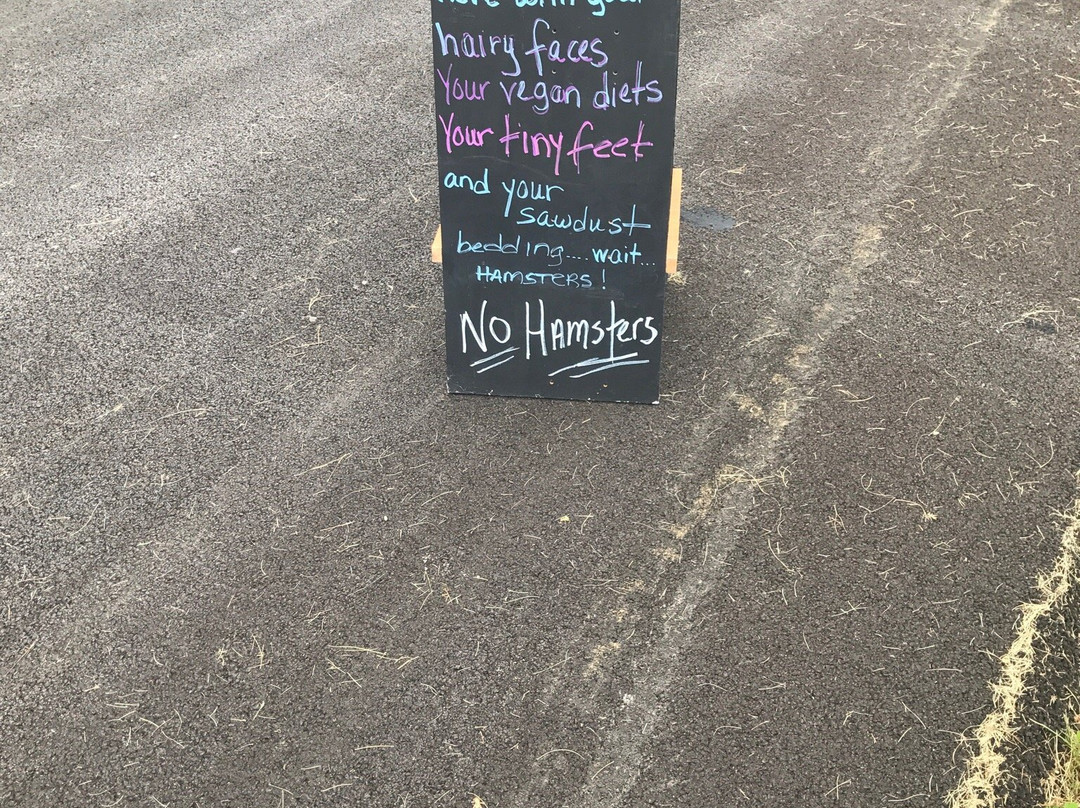 hairy faces
Your vegan diets
Your tiny feet
and your
sawdust
bedding.... wait...
HAMSTERS!
NO HAmsters